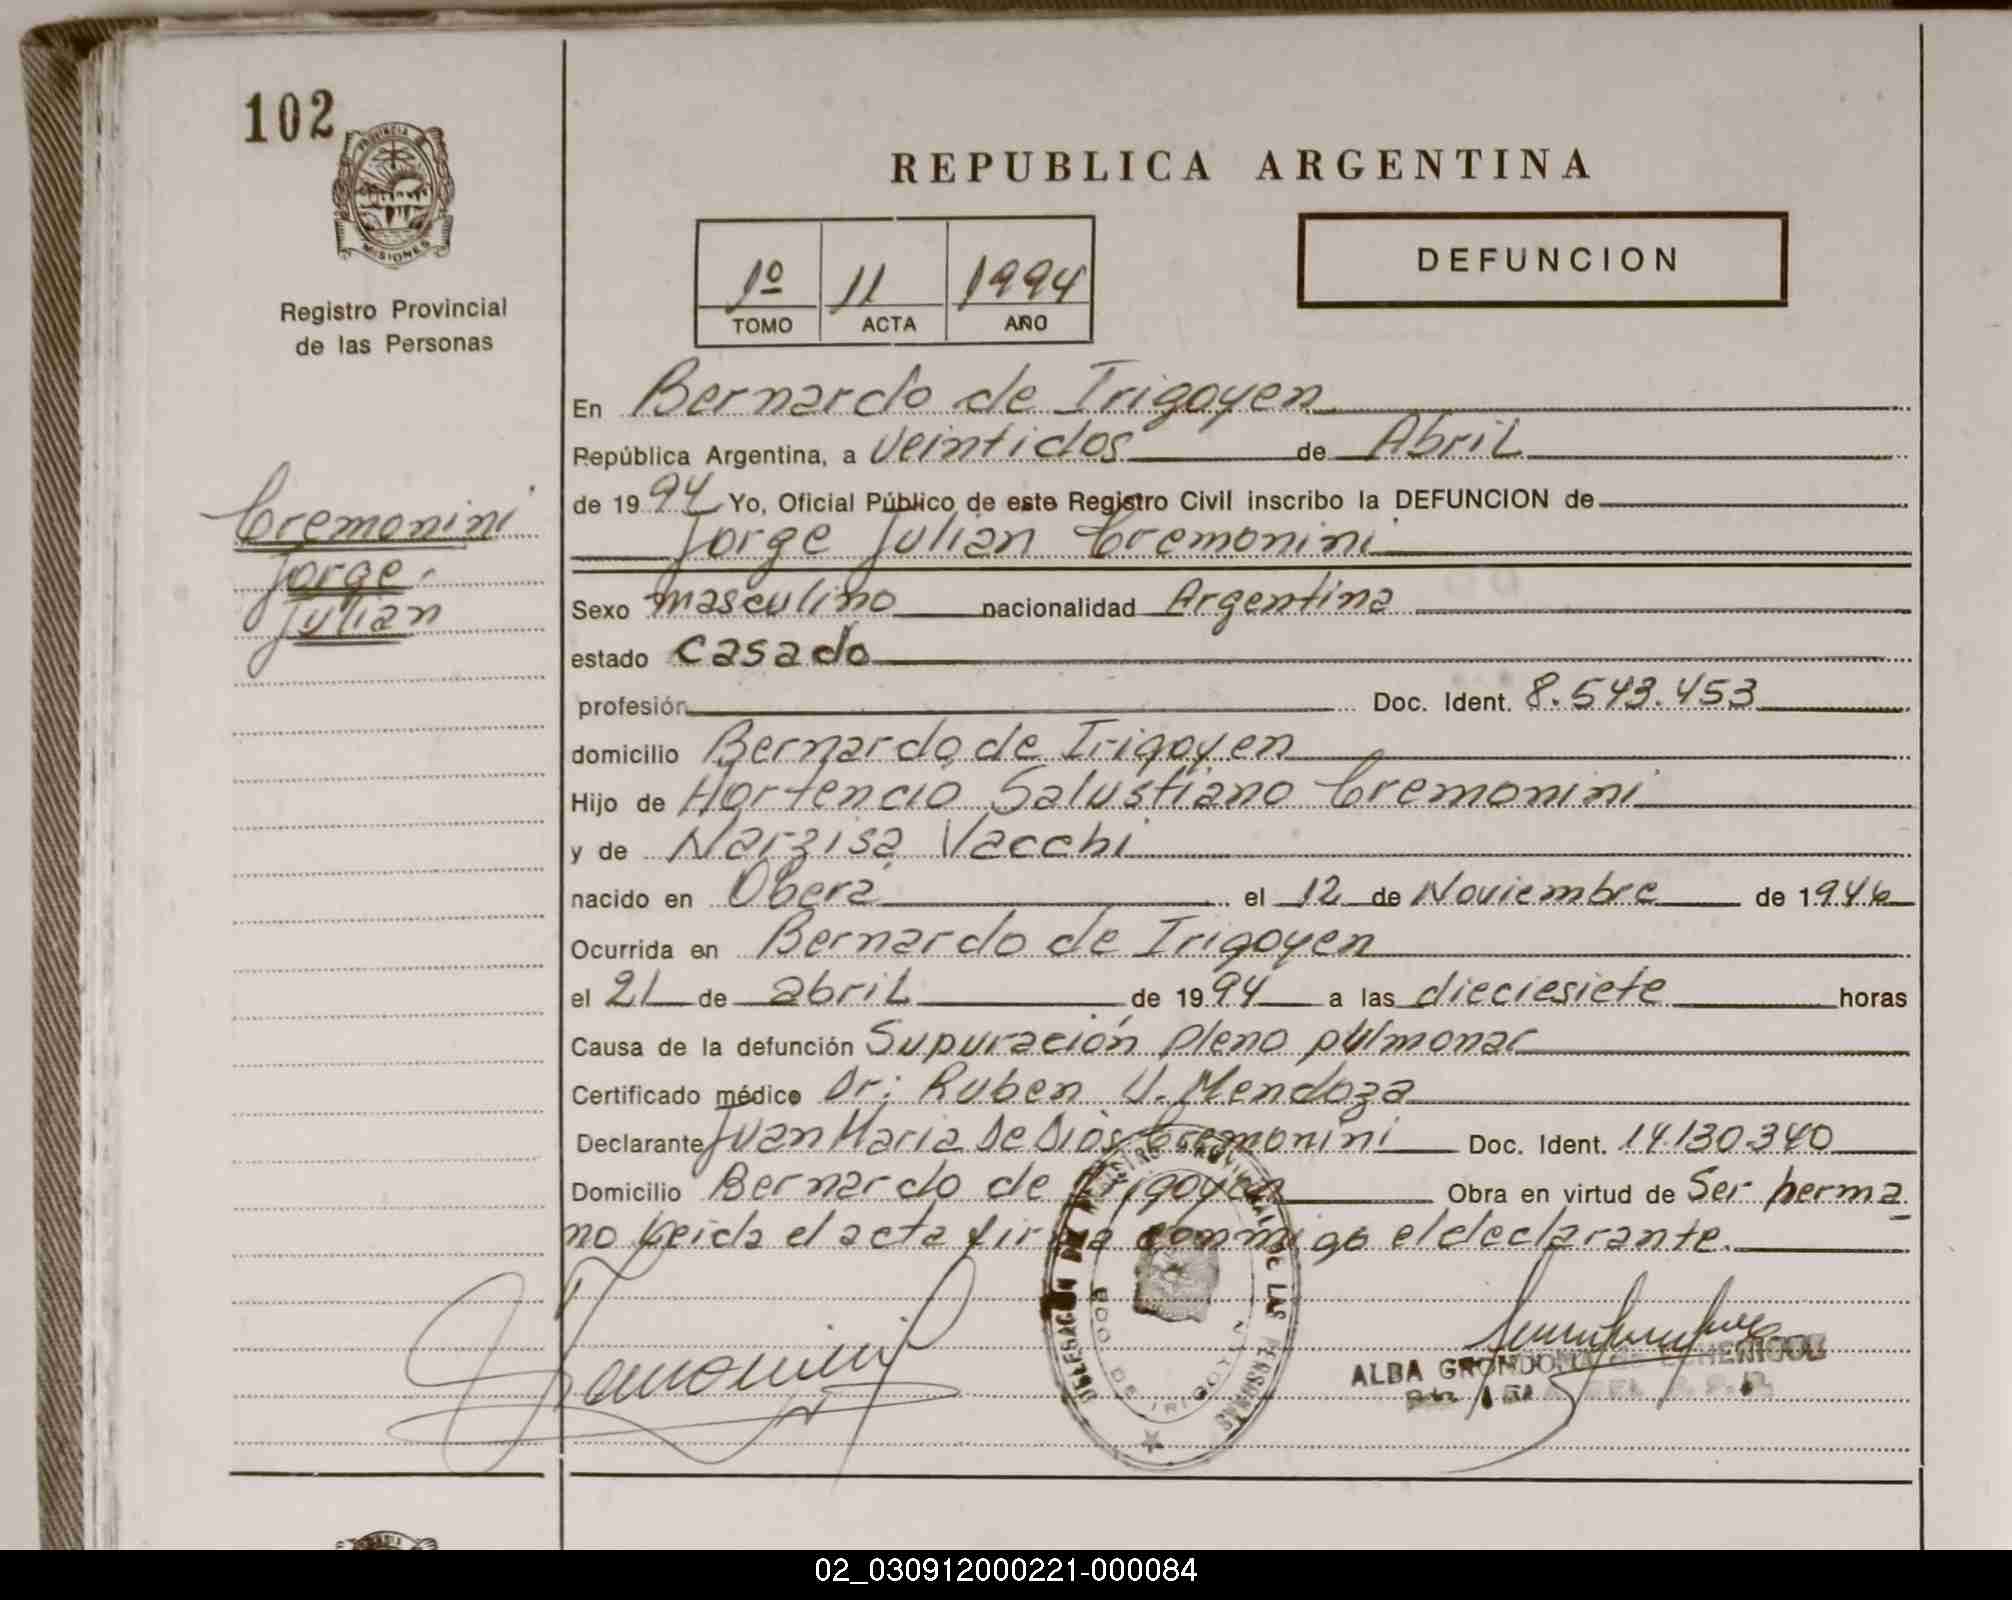 102
PROVINCIA DE
MISIONES
Registro Provincial
de las Personas
REPUBLICA ARGENTINA
1º 11 1994
TOMO ACTA AÑO
DEFUNCION
En Bernardo de Irigoyen
República Argentina, a veintidos de Abril
de 1994 Yo, Oficial Público de este Registro Civil inscribo la DEFUNCION de
Jorge Julian Cremonini
Cremonini
Jorge
Julian
Sexo masculino nacionalidad Argentina
estado casado
profesión Doc. Ident. 8.543.453
domicilio Bernardo de Irigoyen
Hijo de Hortencio Salustiano Cremonini
y de Narzisa Vacchi
nacido en Oberá el 12 de Noviembre de 1946
Ocurrida en Bernardo de Irigoyen
el 21 de abril de 1994 a las dieciesiete horas
Causa de la defunción Supuración pleno pulmonar
Certificado médico Dr: Ruben U. Mendoza
Declarante Juan Maria De Dios Cremonini Doc. Ident. 14.130.340
Domicilio Bernardo de Irigoyen Obra en virtud de Ser herma
no Leida el acta firma conmigo el declarante.
Cremonini
DELEGACION DEL REGISTRO PROVINCIAL DE LAS PERSONAS
BDO DE IRIGOYEN
ALBA GRONDONA DE ECHENIQUE
02_030912000221-000084